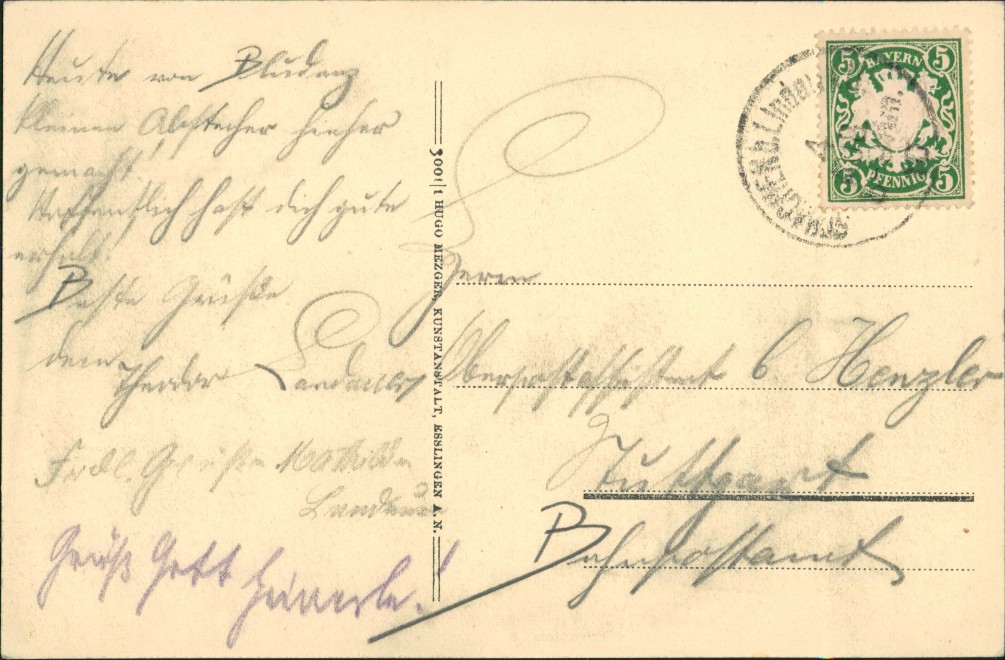 Heute von Bludenz
kleinen Abstecher hieher
gemacht!
Hoffentlich hast dich gute
erholt.
Beste Grüße
dein
Theodor Landauer
Frdl. Grüße Mathilde
Landauer
Grüß Gott
3001/1 HUGO MEZGER, KUNSTANSTALT, ESSLINGEN A. N.
5 BAYERN 5
5 PFENNIG 5
SCHACHEN b. Lindau
Herrn
Oberpostassistent C. Henzler
Stuttgart
Bahnpostamt